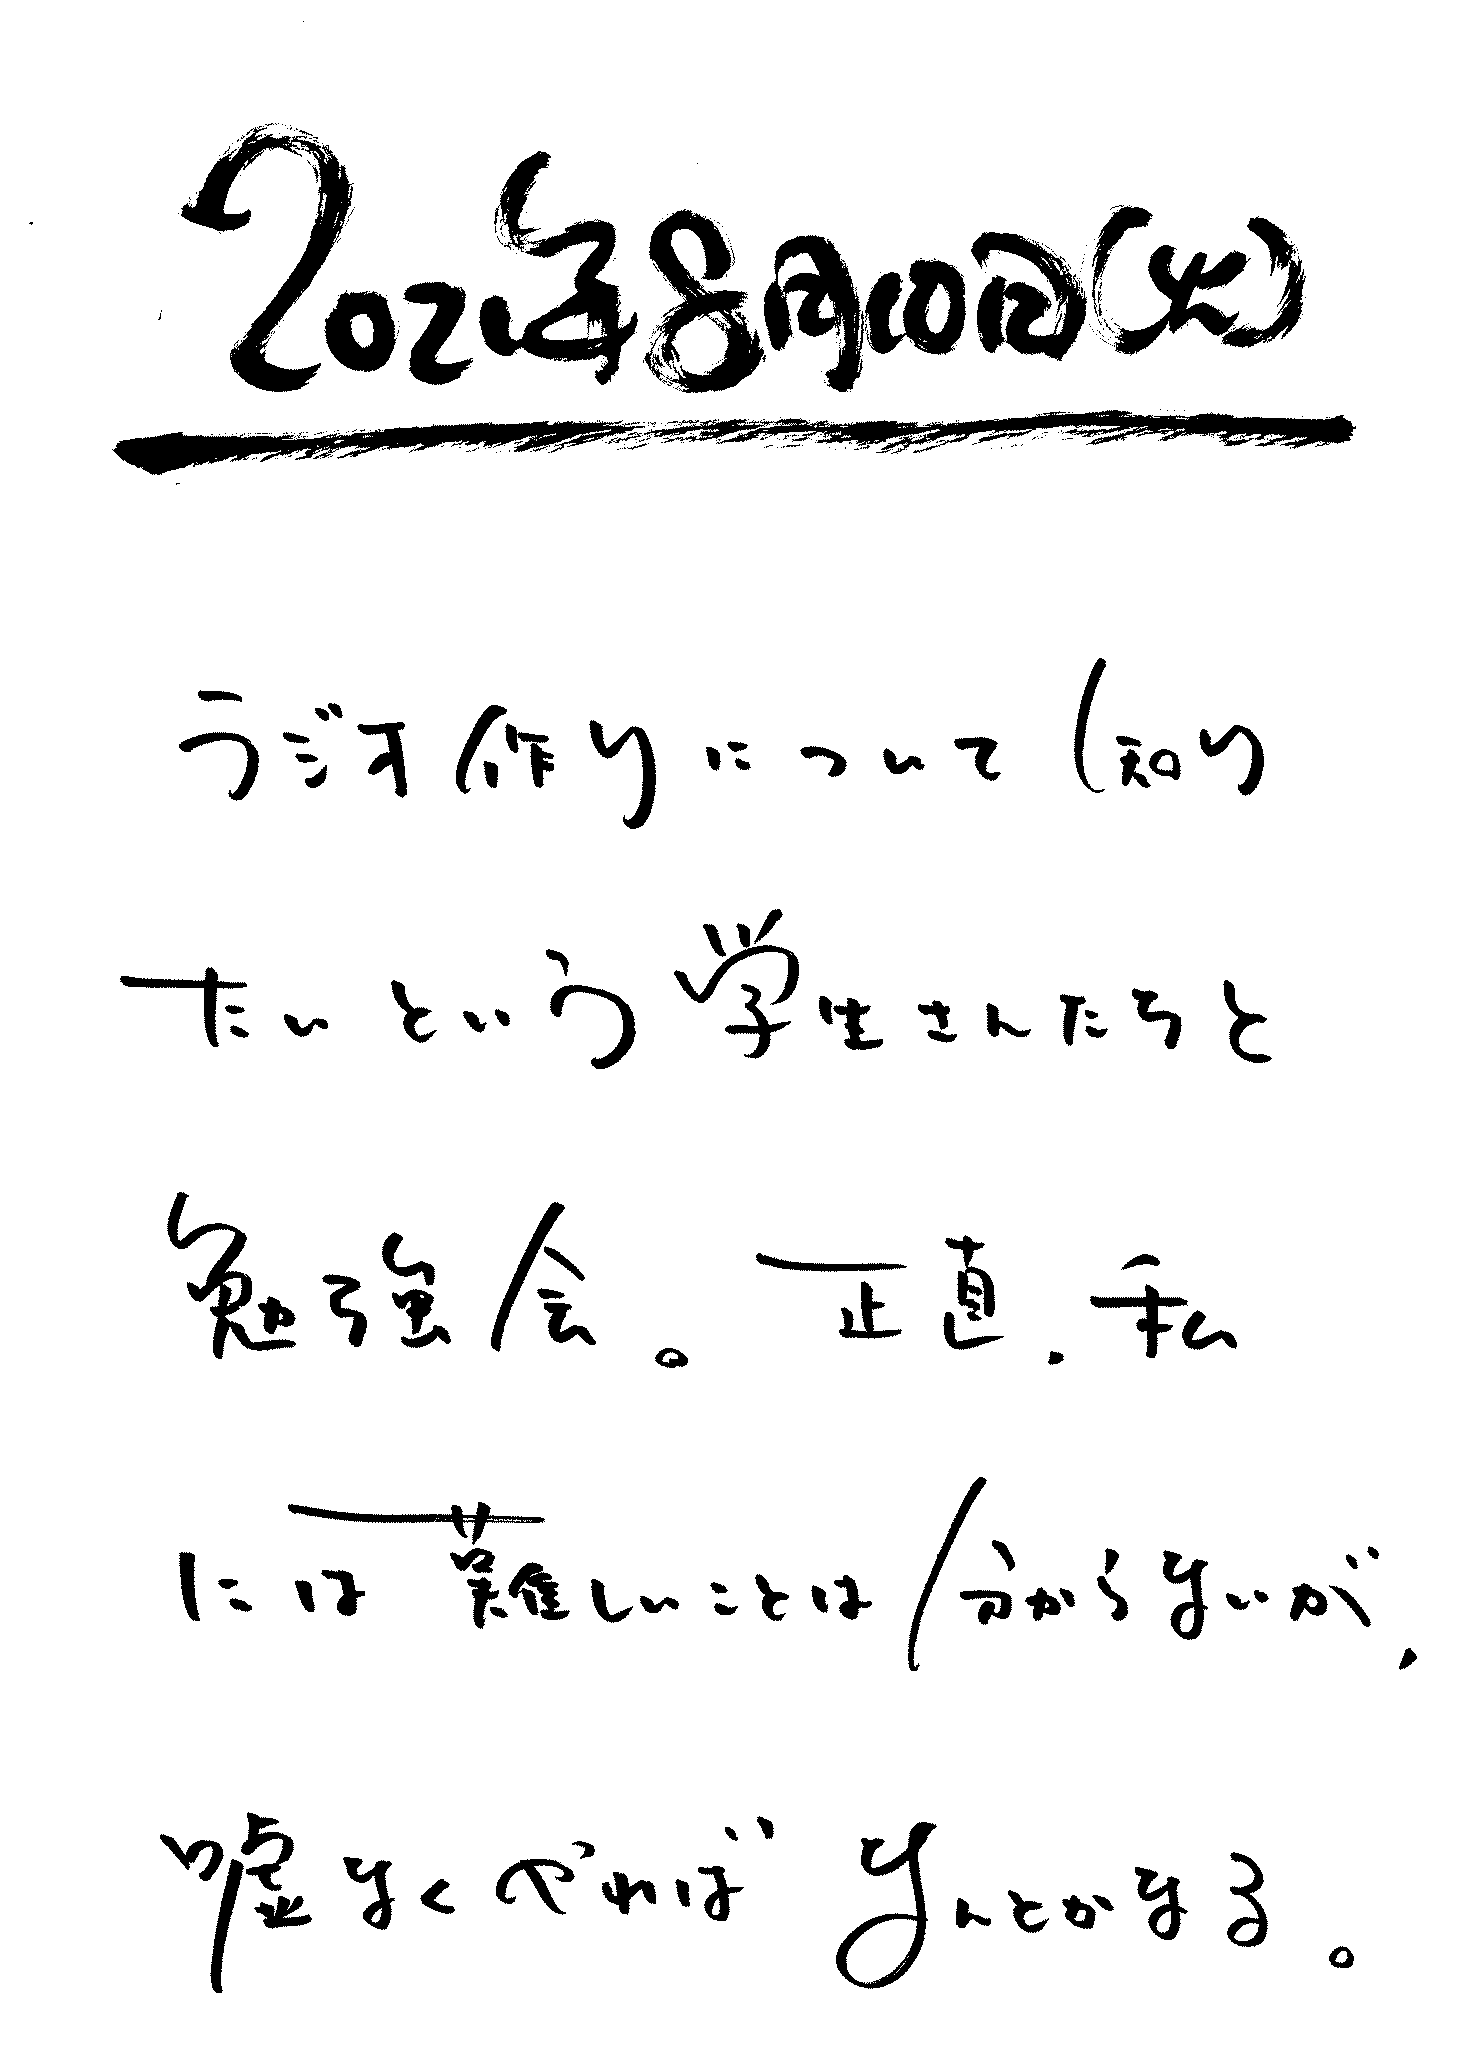 2021年8月10日(火)
ラジオ作りについて知り
たいという学生さんたちと
勉強会。正直、私
には難しいことは分からないが、
嘘なくやればなんとかなる。